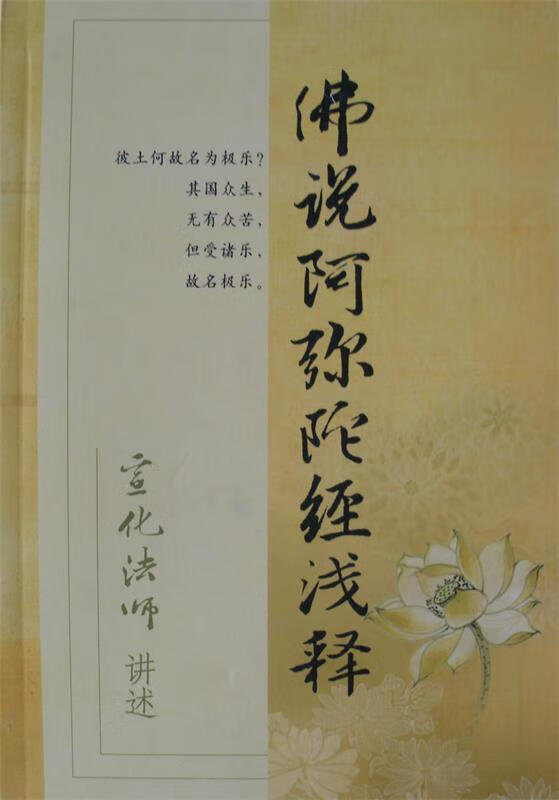 佛说阿弥陀经浅释
彼土何故名为极乐？
其国众生，
无有众苦，
但受诸乐，
故名极乐。
宣化法师 讲述